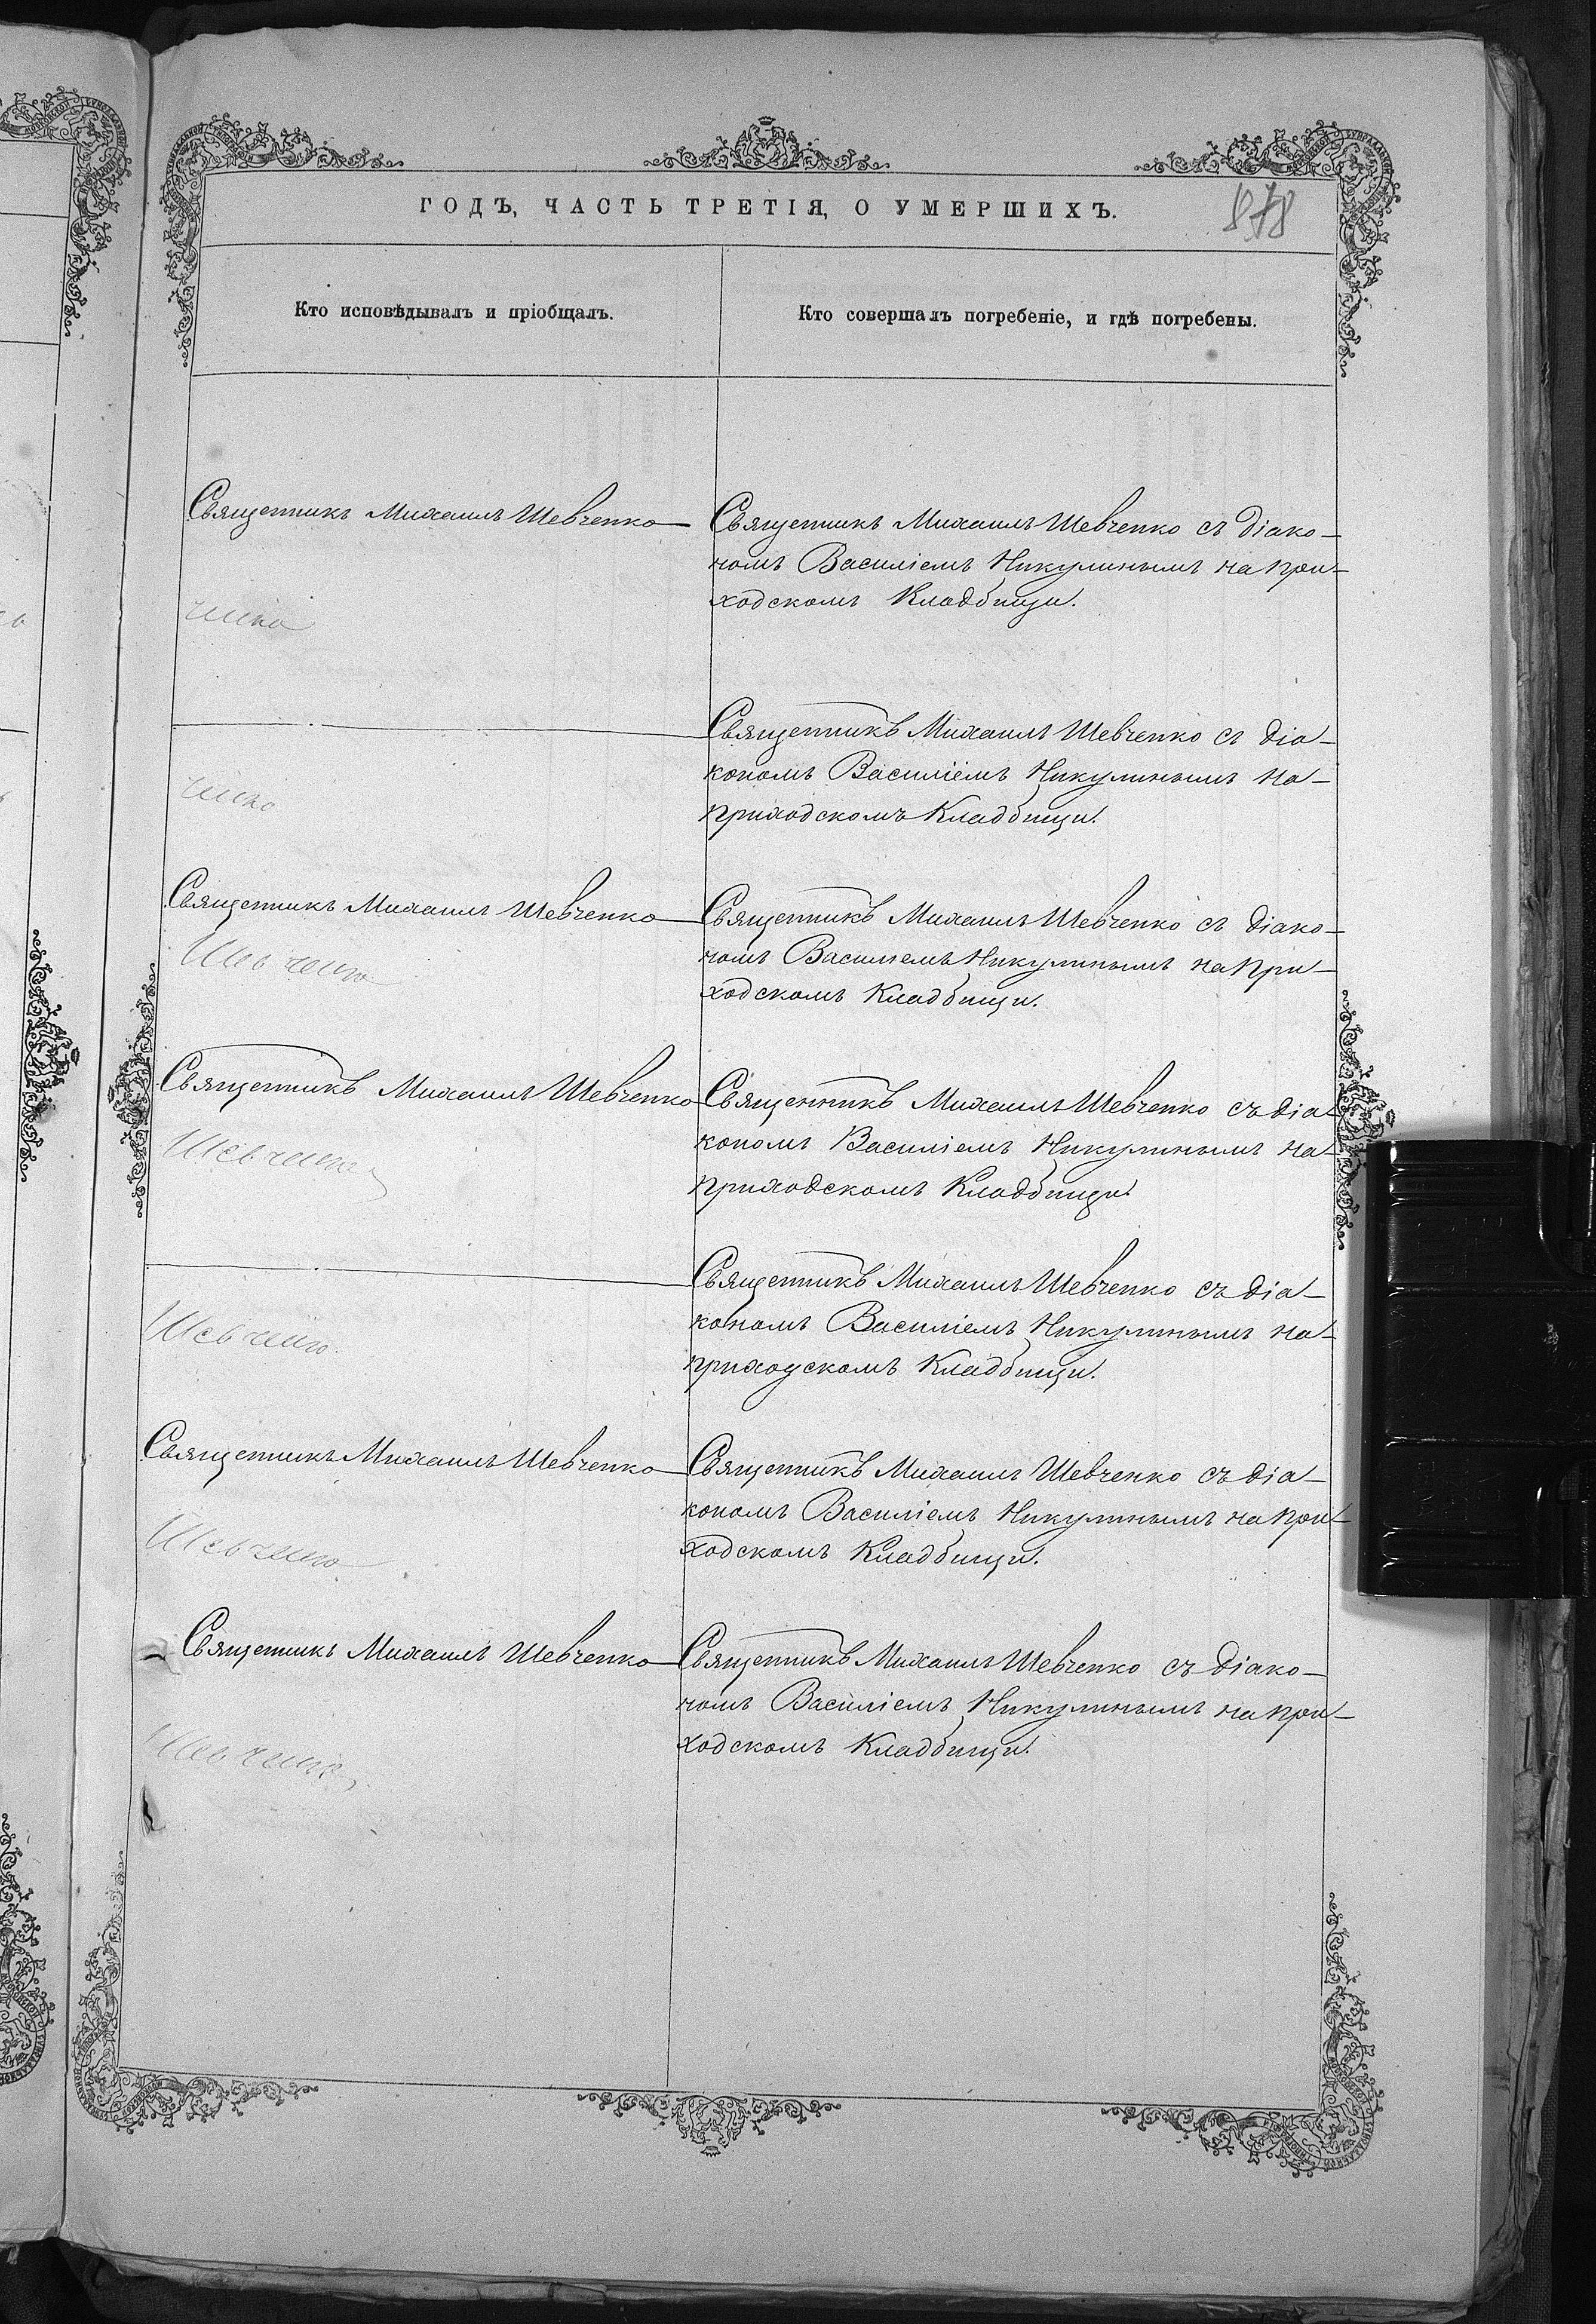 ГОДЪ, ЧАСТЬ ТРЕТІЯ, О УМЕРШИХЪ.
878
Кто исповѣдывалъ и пріобщалъ.
Кто совершалъ погребеніе, и гдѣ погребены.
Священникъ Михаилъ Шевченко
Священникъ Михаилъ Шевченко съ діако-
номъ Василіемъ Никулинымъ на при-
ходскомъ Кладбищи.
Священникъ Михаилъ Шевченко съ діа-
кономъ Василіемъ Никулинымъ на-
приходскомъ Кладбищи.
Священникъ Михаилъ Шевченко
Шевченко
Священникъ Михаилъ Шевченко съ діако-
номъ Василіемъ Никулинымъ на при-
ходскомъ Кладбищи.
Священникъ Михаилъ Шевченко
Шевченко
Священникъ Михаилъ Шевченко съ діа-
кономъ Василіемъ Никулинымъ на-
приходскомъ Кладбищи.
Шевченко
Священникъ Михаилъ Шевченко съ діа-
кономъ Василіемъ Никулинымъ на-
приходскомъ Кладбищи.
Священникъ Михаилъ Шевченко
Шевченко
Священникъ Михаилъ Шевченко съ діа-
кономъ Василіемъ Никулинымъ на при-
ходскомъ Кладбищи.
Священникъ Михаилъ Шевченко
Шевченко
Священникъ Михаилъ Шевченко съ діако-
номъ Василіемъ Никулинымъ на при-
ходскомъ Кладбищи.